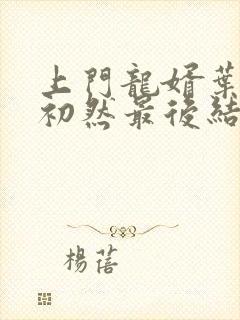 上門龍婿葉
初然最後結
楊蓓